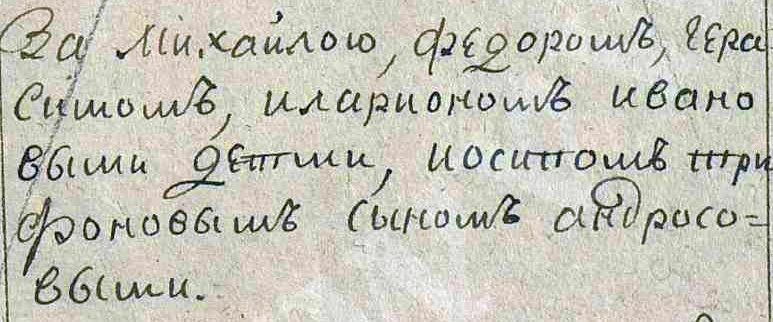 За Михайлою, федоромъ, гера
симомъ, илариономъ ивано
выми детми, иосипомъ три
фоновымъ сыномъ андросо=
выми.